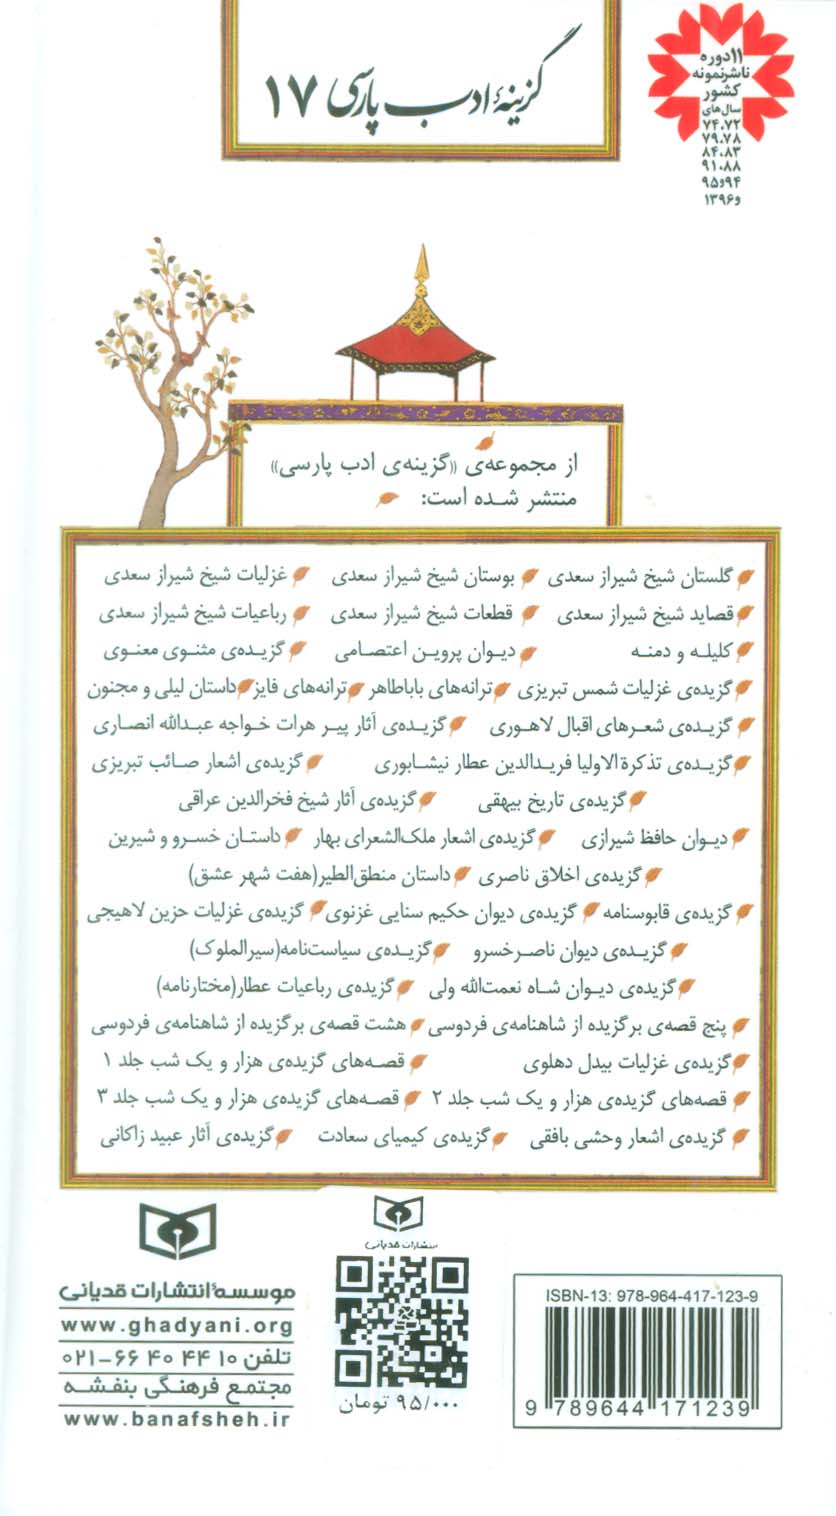 گزینهٔ ادب پارسی ۱۷
۱۱ دوره
ناشر نمونه
کشور
سال‌های
۷۴،۷۲
۷۹،۷۸
۸۴،۸۳
۹۱،۸۸
۹۴و۹۵
و۱۳۹۶
از مجموعه‌ی «گزینه‌ی ادب پارسی»
منتشر شده است:
گلستان شیخ شیراز سعدی بوستان شیخ شیراز سعدی غزلیات شیخ شیراز سعدی
قصاید شیخ شیراز سعدی قطعات شیخ شیراز سعدی رباعیات شیخ شیراز سعدی
کلیله و دمنه دیوان پروین اعتصامی گزیده‌ی مثنوی معنوی
گزیده‌ی غزلیات شمس تبریزی ترانه‌های باباطاهر ترانه‌های فایز داستان لیلی و مجنون
گزیده‌ی شعرهای اقبال لاهوری گزیده‌ی آثار پیر هرات خواجه عبدالله انصاری
گزیده‌ی تذکرة الاولیا فریدالدین عطار نیشابوری گزیده‌ی اشعار صائب تبریزی
گزیده‌ی تاریخ بیهقی گزیده‌ی آثار شیخ فخرالدین عراقی
دیوان حافظ شیرازی گزیده‌ی اشعار ملک‌الشعرای بهار داستان خسرو و شیرین
گزیده‌ی اخلاق ناصری داستان منطق‌الطیر(هفت شهر عشق)
گزیده‌ی قابوسنامه گزیده‌ی دیوان حکیم سنایی غزنوی گزیده‌ی غزلیات حزین لاهیجی
گزیده‌ی دیوان ناصرخسرو گزیده‌ی سیاست‌نامه(سیرالملوک)
گزیده‌ی دیوان شاه نعمت‌الله ولی گزیده‌ی رباعیات عطار(مختارنامه)
پنج قصه‌ی برگزیده از شاهنامه‌ی فردوسی هشت قصه‌ی برگزیده از شاهنامه‌ی فردوسی
گزیده‌ی غزلیات بیدل دهلوی قصه‌های گزیده‌ی هزار و یک شب جلد ۱
قصه‌های گزیده‌ی هزار و یک شب جلد ۲ قصه‌های گزیده‌ی هزار و یک شب جلد ۳
گزیده‌ی اشعار وحشی بافقی گزیده‌ی کیمیای سعادت گزیده‌ی آثار عبید زاکانی
ISBN-13: 978-964-417-123-9
9 789644 171239
انتشارات قدیانی
۹۵/۰۰۰ تومان
موسسهٔ انتشارات قدیانی
www.ghadyani.org
تلفن ۱۰ ۴۴ ۴۰ ۶۶-۰۲۱
مجتمع فرهنگی بنفشه
www.banafsheh.ir